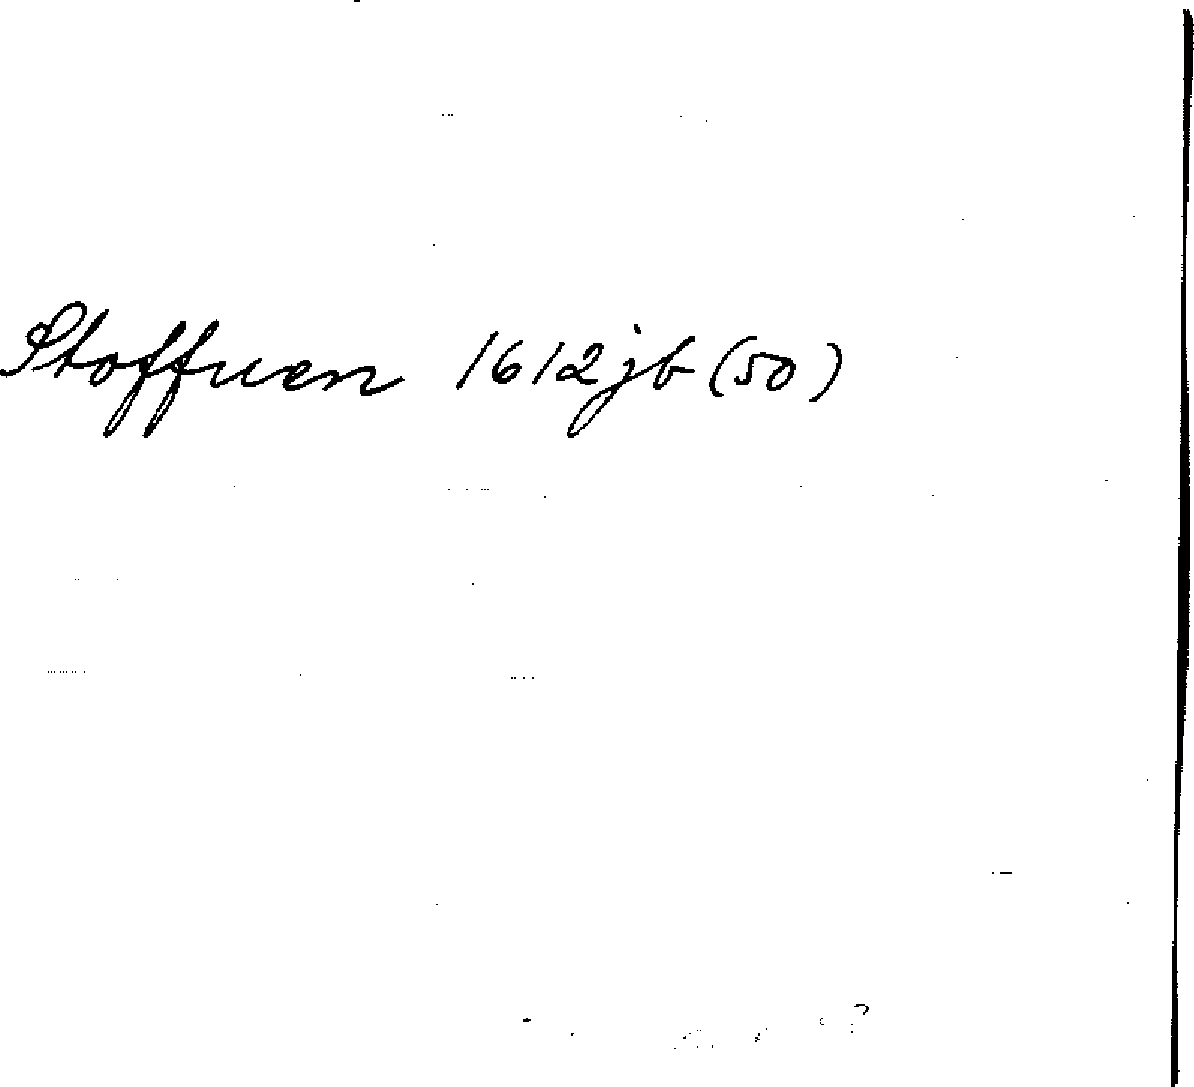 Stoffuen 1612 jb (50)